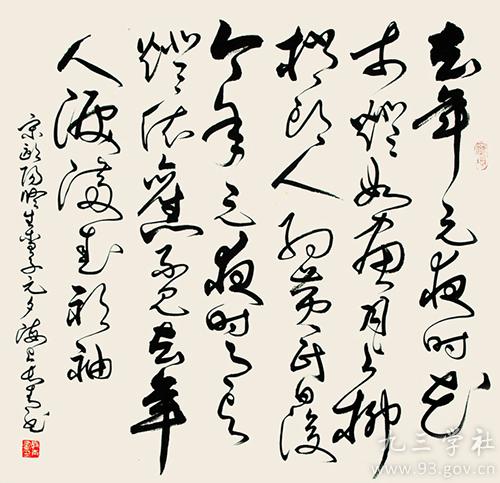 去年元夜时花
市燈如畫月上柳
梢头人约黄昏後
今年元夜时月与
燈依舊不见去年
人淚满春衫袖
宋欧阳修生查子元夕海上
九三学社
www.93.gov.cn